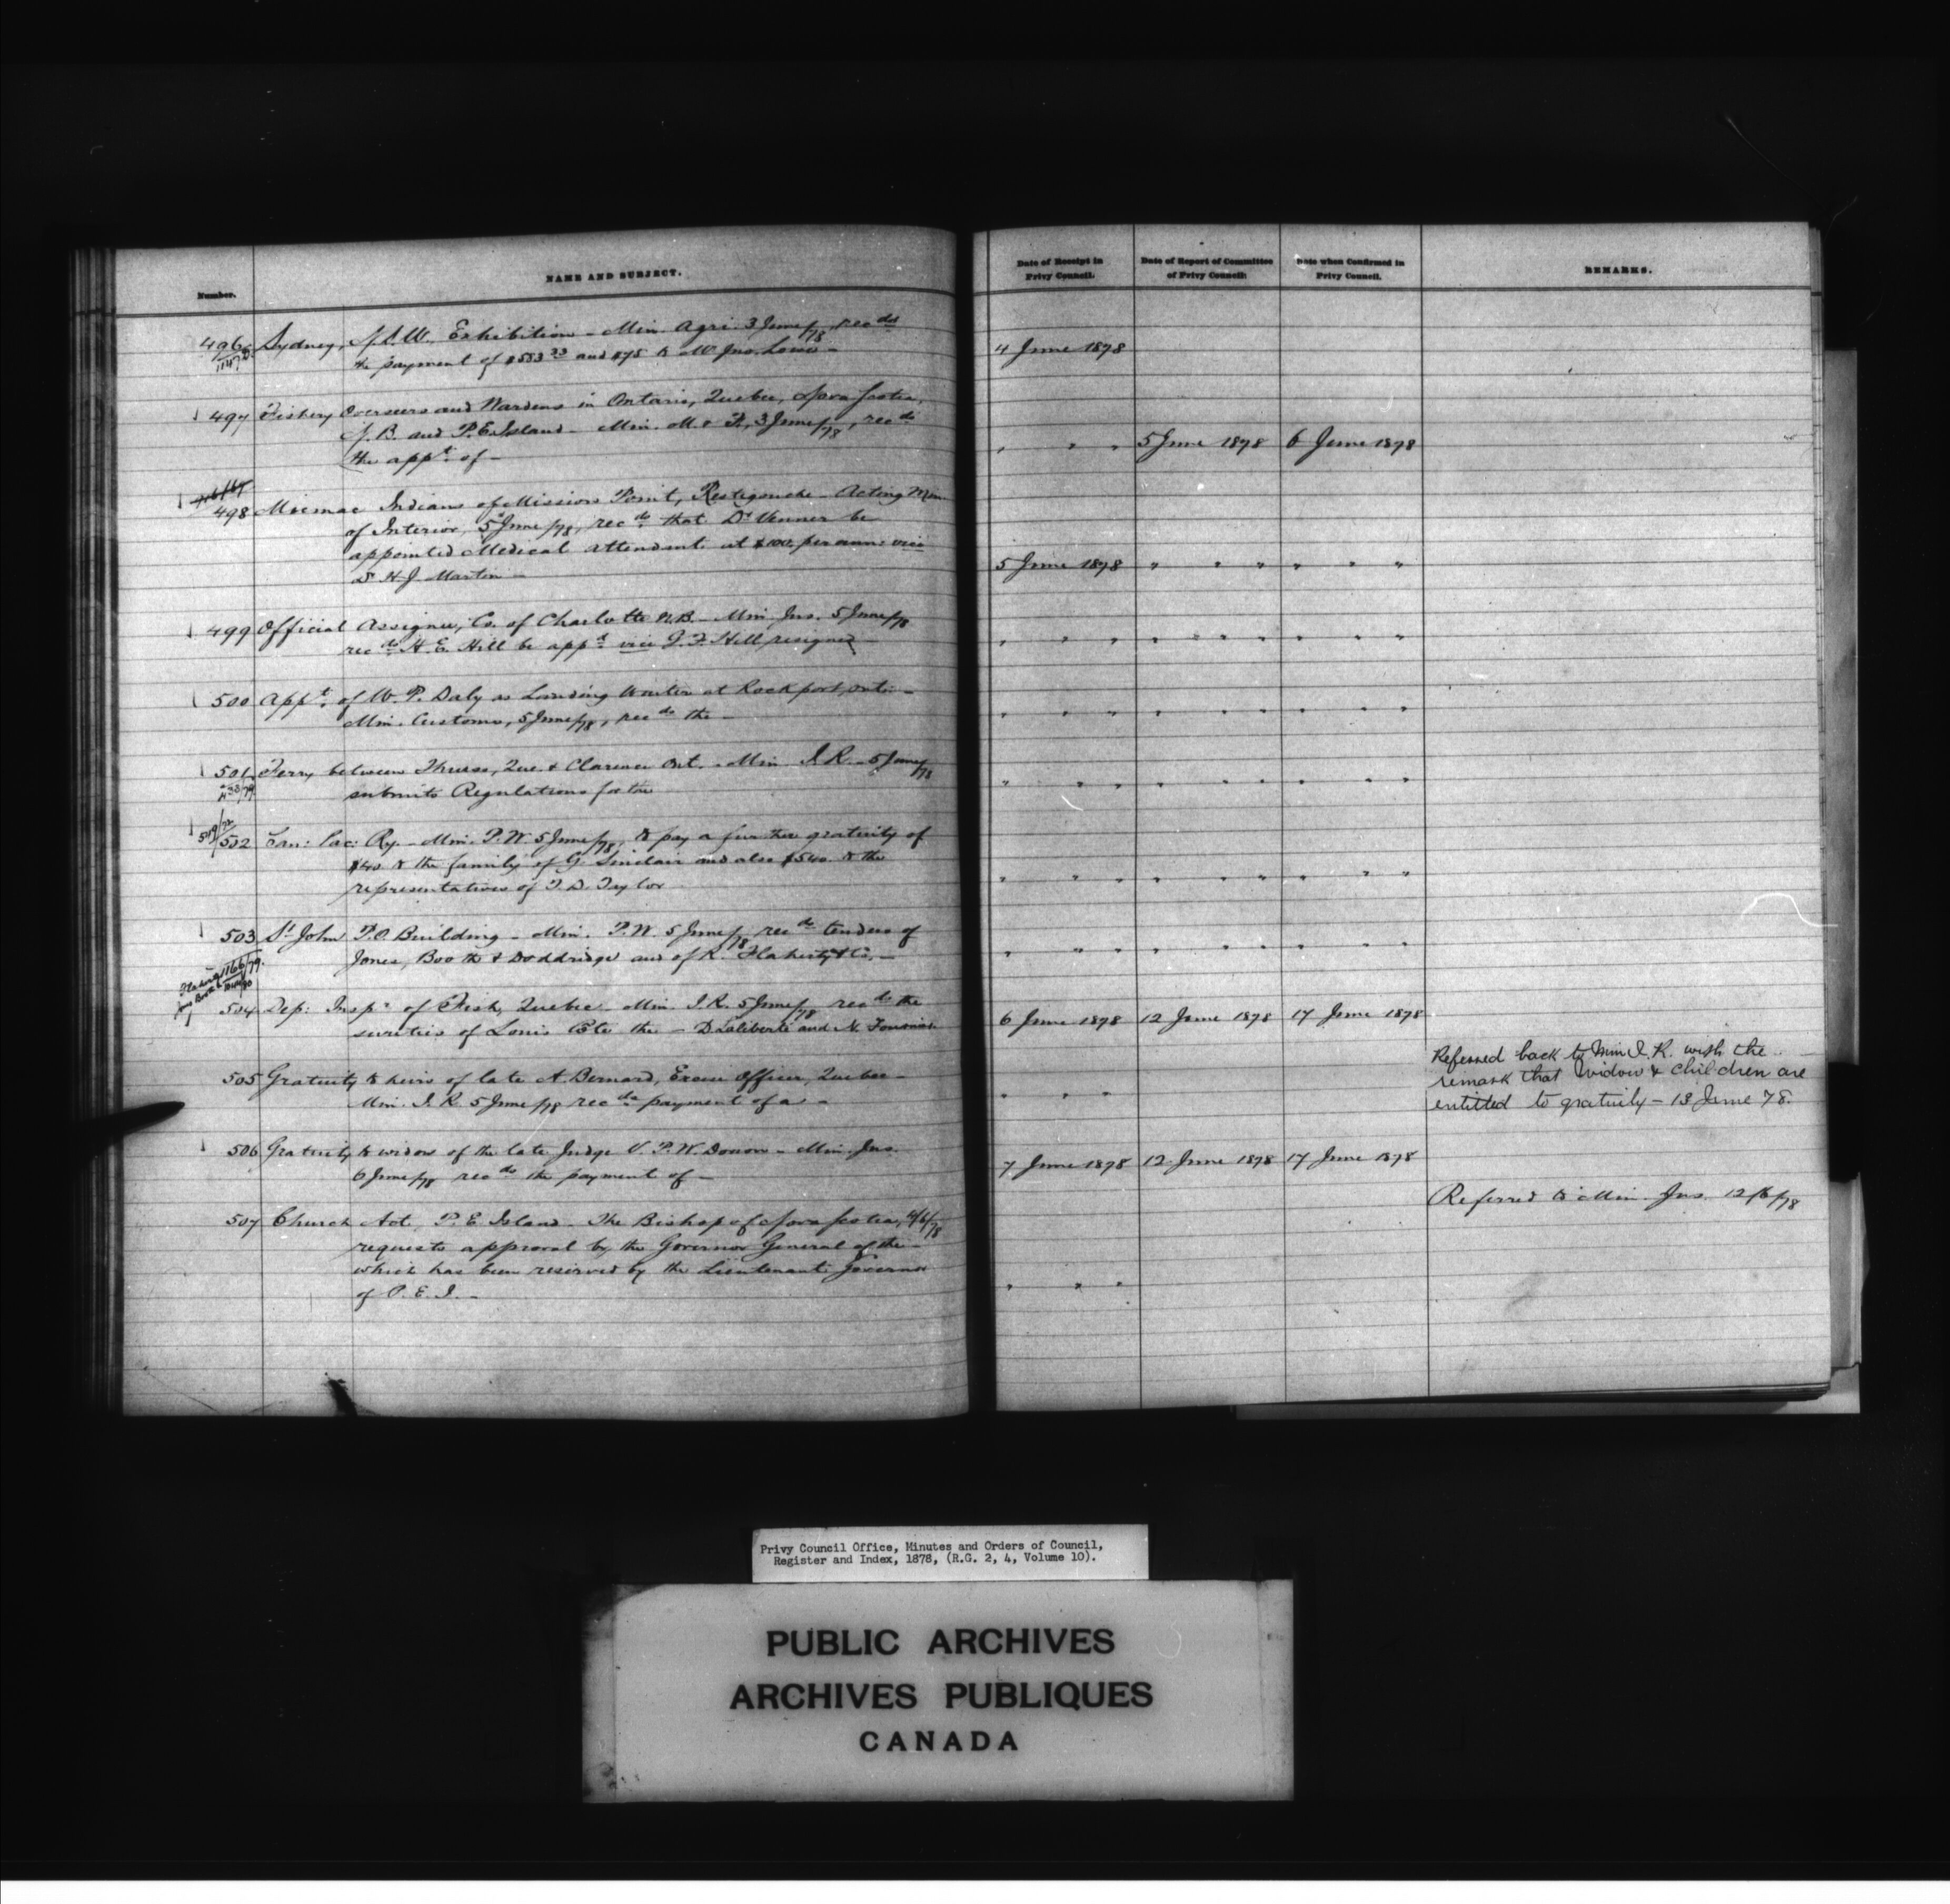 Number.
NAME AND SUBJECT.
496 Sydney, N.S.W. Exhibition - Min. Agri. 3 June/78, recds
1147
the payment of $533 33 and $75 to Mr Jno. Lowe -
497 Fishery Overseers and Wardens in Ontario, Quebec, Nova Scotia,
N.B. and P.E. Island - Min. M. & F., 3 June/78, recds
the appt. of -
498 Micmac Indians of Mission Point, Restigouche - Acting Min
of Interior, 5 June/78, recds that Dr Venner be
appointed Medical attendant at $100. per ann: vice
Dr H.J. Martin -
499 Official Assignee, Co. of Charlotte N.B. - Min. Jus. 5 June/78
recds H.E. Hill be appd vice G.F. Hill, resigned
500 Appt. of W.P. Daly as Landing Waiter at Rockport, Ont: -
Min. Customs, 5 June/78, recds the -
501 Ferry between Thurso, Que. & Clarence Ont. - Min. I.R. - 5 June/78
submits Regulations for the
502 Can: Pac: Ry. - Min. P.W. 5 June/78, to pay a further gratuity of
$40 to the family of G. Sinclair and also $540. to the
representatives of T.D. Taylor
503 St John P.O. Building - Min. P.W. 5 June/78 recds tenders of
Jones, Booth & Doddridge and of R. Flaherty & Co. -
504 Dep: Inspr of Fish, Quebec - Min. I.R. 5 June/78 recds the
sureties of Louis Cote the - D. Laliberté and N.
505 Gratuity to heirs of late A. Bernard, Excise Officer, Quebec -
Min. I.R. 5 June/78 recds payment of a -
506 Gratuity to widow of the late Judge V.P.W. Dorion - Min. Jus.
6 June/78 recds the payment of -
507 Church Act, P.E. Island - The Bishop of Nova Scotia, 4/6/78
requests approval by the Governor General of the -
which has been reserved by the Lieutenant Governor
of P.E.I. -
Date of Receipt in Privy Council.
Date of Report of Committee of Privy Council.
Date when Confirmed in Privy Council.
REMARKS.
4 June 1878
" " " 5 June 1878 6 June 1878
5 June 1878 " " " " " "
" " " " " " " " "
" " " " " " " " "
" " " " " " " " "
" " " " " " " " "
" " " " " " " " "
6 June 1878 12 June 1878 17 June 1878
Referred back to Min I.R. with the
remark that widow & children are
" " "
entitled to gratuity - 13 June 78.
7 June 1878 12 June 1878 17 June 1878
Referred to Min. Jus. 12/6/78
" " "
Privy Council Office, Minutes and Orders of Council,
Register and Index, 1878, (R.G. 2, 4, Volume 10).
PUBLIC ARCHIVES
ARCHIVES PUBLIQUES
CANADA